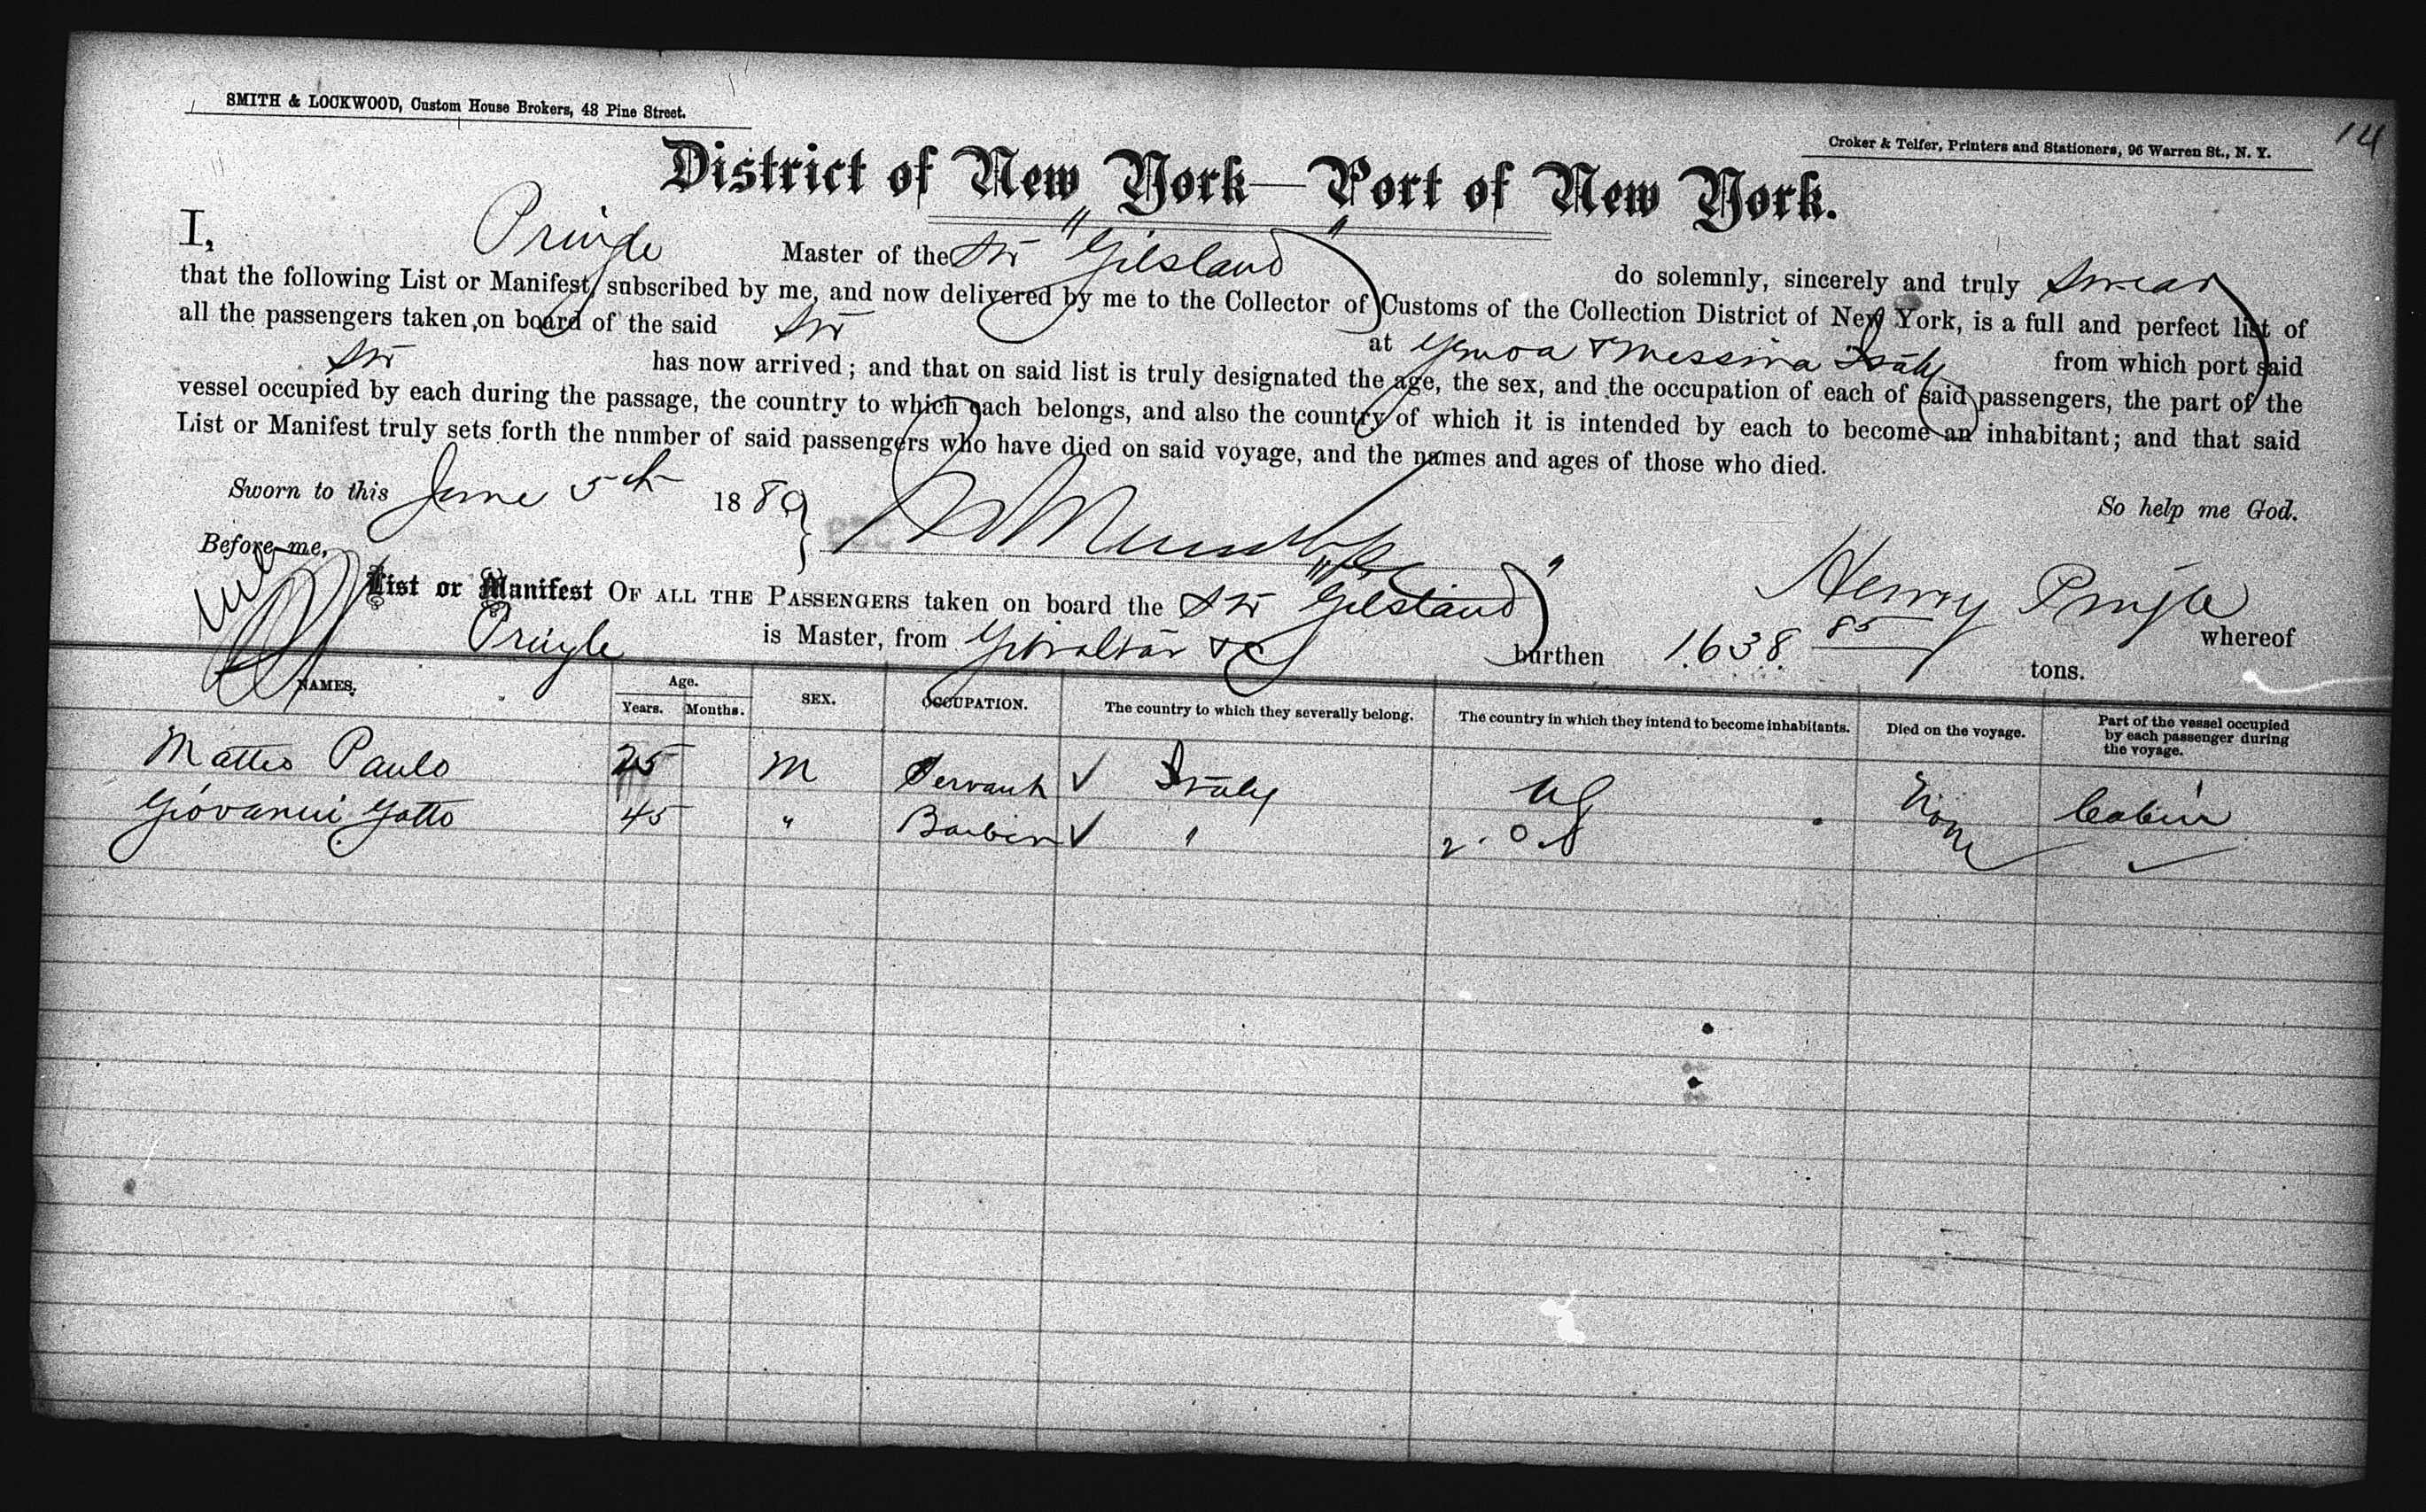 14
SMITH & LOCKWOOD, Custom House Brokers, 48 Pine Street.
Croker & Telfer, Printers and Stationers, 96 Warren St., N. Y.
District of New York—Port of New York.
I, Pringle Master of the Str "Gilsland" do solemnly, sincerely and truly swear
that the following List or Manifest, subscribed by me, and now delivered by me to the Collector of Customs of the Collection District of New York, is a full and perfect list of
all the passengers taken on board of the said Str at Genoa & Messina Italy from which port said
Str has now arrived; and that on said list is truly designated the age, the sex, and the occupation of each of said passengers, the part of the
vessel occupied by each during the passage, the country to which each belongs, and also the country of which it is intended by each to become an inhabitant; and that said
List or Manifest truly sets forth the number of said passengers who have died on said voyage, and the names and ages of those who died.
Sworn to this June 5th 1889
So help me God.
Before me,
Henry Pringle
List or Manifest OF ALL THE PASSENGERS taken on board the Str "Gilsland" whereof
Pringle is Master, from Gibraltar &c burthen 1638 85 tons.
NAMES. Age. Years. Months. SEX. OCCUPATION. The country to which they severally belong. The country in which they intend to become inhabitants. Died on the voyage. Part of the vessel occupied by each passenger during the voyage.
Matteo Paulo 25 M Servant ✓ Italy US None Cabin
Giovanni Gatto 45 " Barber ✓ " ✓